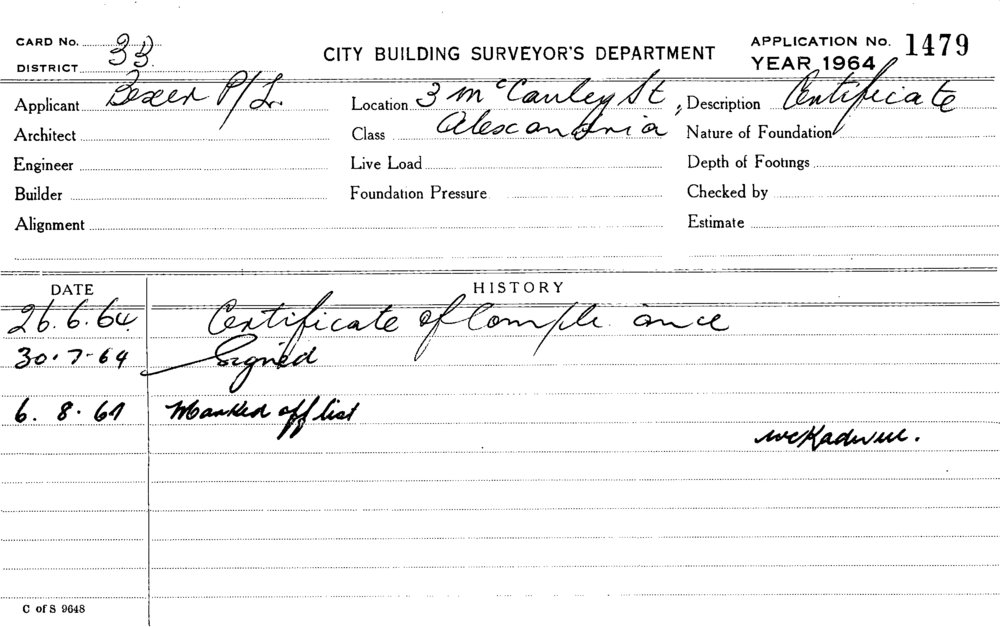 CARD No. 33
DISTRICT
CITY BUILDING SURVEYOR'S DEPARTMENT
APPLICATION No. 1479
YEAR 1964
Applicant Bexer P/L.
Location 3 McCauley St,
Description Certificate
Architect
Class Alexandria
Nature of Foundation
Engineer
Live Load
Depth of Footings
Builder
Foundation Pressure
Checked by
Alignment
Estimate
DATE HISTORY
26.6.64. Certificate of Compliance
30.7-64 Signed
6.8.64 Marked off list
C of S 9648